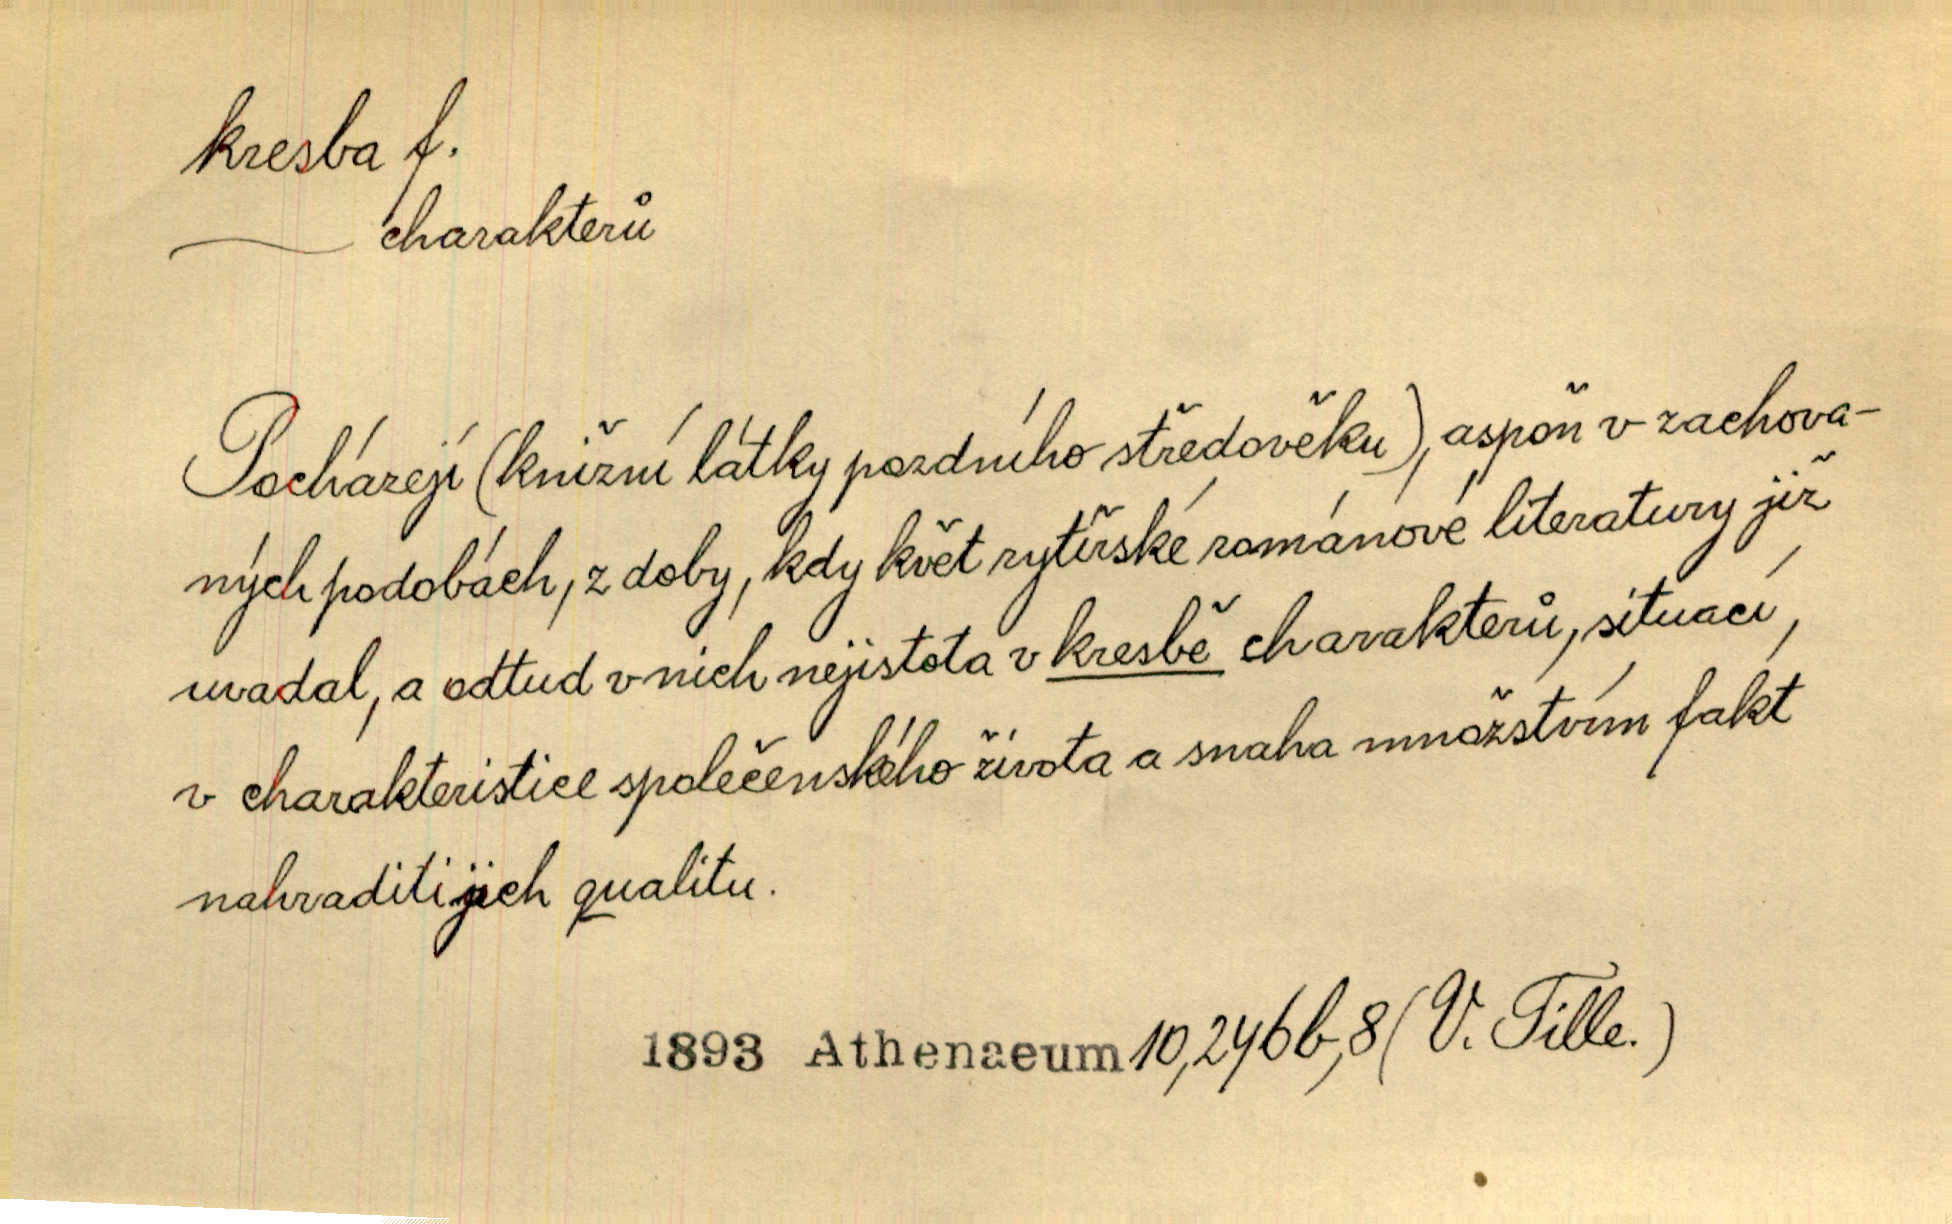 kresba f.
charakterů
Pocházejí (knižní látky pozdního středověku), aspoň v zachova-
ných podobách, z doby, kdy květ rytířské románové literatury již
uvadal, a odtud v nich nejistota v kresbě charakterů, situací,
v charakteristice společenského života a snaha množstvím fakt
nahraditi jich qualitu.
1893 Athenaeum 10,246b,8 (V. Tille.)